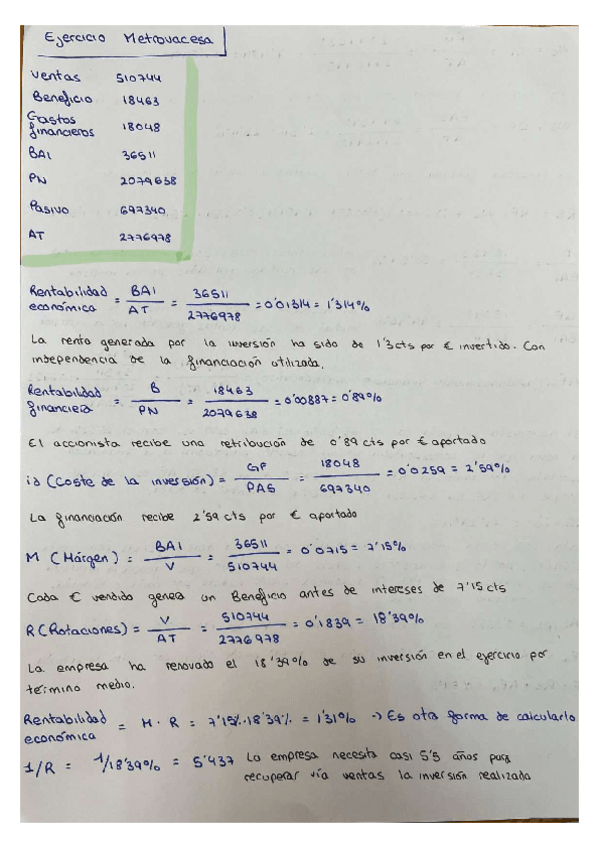 Ejercicio Metrovacesa
Ventas 510744
Beneficio 18463
Gastos
financieros 18048
BAI 36511
PN 2079638
Pasivo 697340
AT 2776978
Rentabilidad
económica = BAI / AT = 36511 / 2776978 = 0'01314 = 1'314%
La renta generada por la inversión ha sido de 1'3cts por € invertido. Con
independencia de la financiación utilizada.
Rentabilidad
financiera = B / PN = 18463 / 2079638 = 0'00887 = 0'89%
El accionista recibe una retribución de 0'89 cts por € aportado
id (Coste de la inversión) = GF / PAS = 18048 / 697340 = 0'0259 = 2'59%
La financiación recibe 2'59 cts por € aportado
M (Márgen) = BAI / V = 36511 / 510744 = 0'0715 = 7'15%
Cada € vendido genera un Beneficio antes de intereses de 7'15 cts
R (Rotaciones) = V / AT = 510744 / 2776978 = 0'1839 = 18'39%
La empresa ha renovado el 18'39% de su inversión en el ejercicio por
término medio.
Rentabilidad
económica = M · R = 7'15% · 18'39% = 1'31% -> Es otra forma de calcularlo
1/R = 1/18'39% = 5'437 La empresa necesita casi 5'5 años para
recuperar vía ventas la inversión realizada